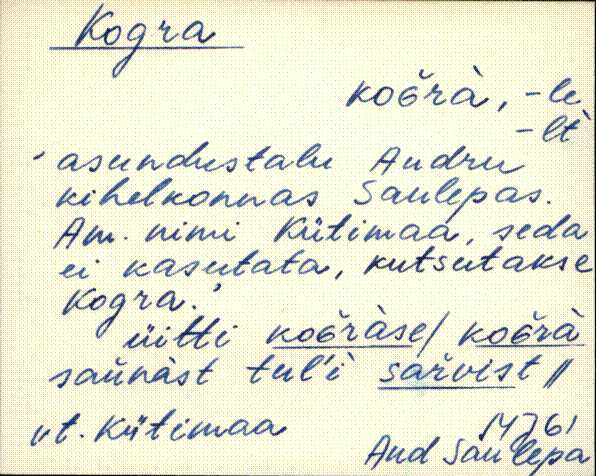 Kogra
koɢ̆rὰ, -le
-lt
‘asundustalu Audru
kihelkonnas Saulepas.
Am. nimi Kütimaa, seda
ei kasutata, kutsutakse
Kogra.’
üitti koɢ̆rὰse/ koɢ̆rὰ
saŭnὰst tul'ì sar̆vist //
vt. Kütimaa
And Saulepa